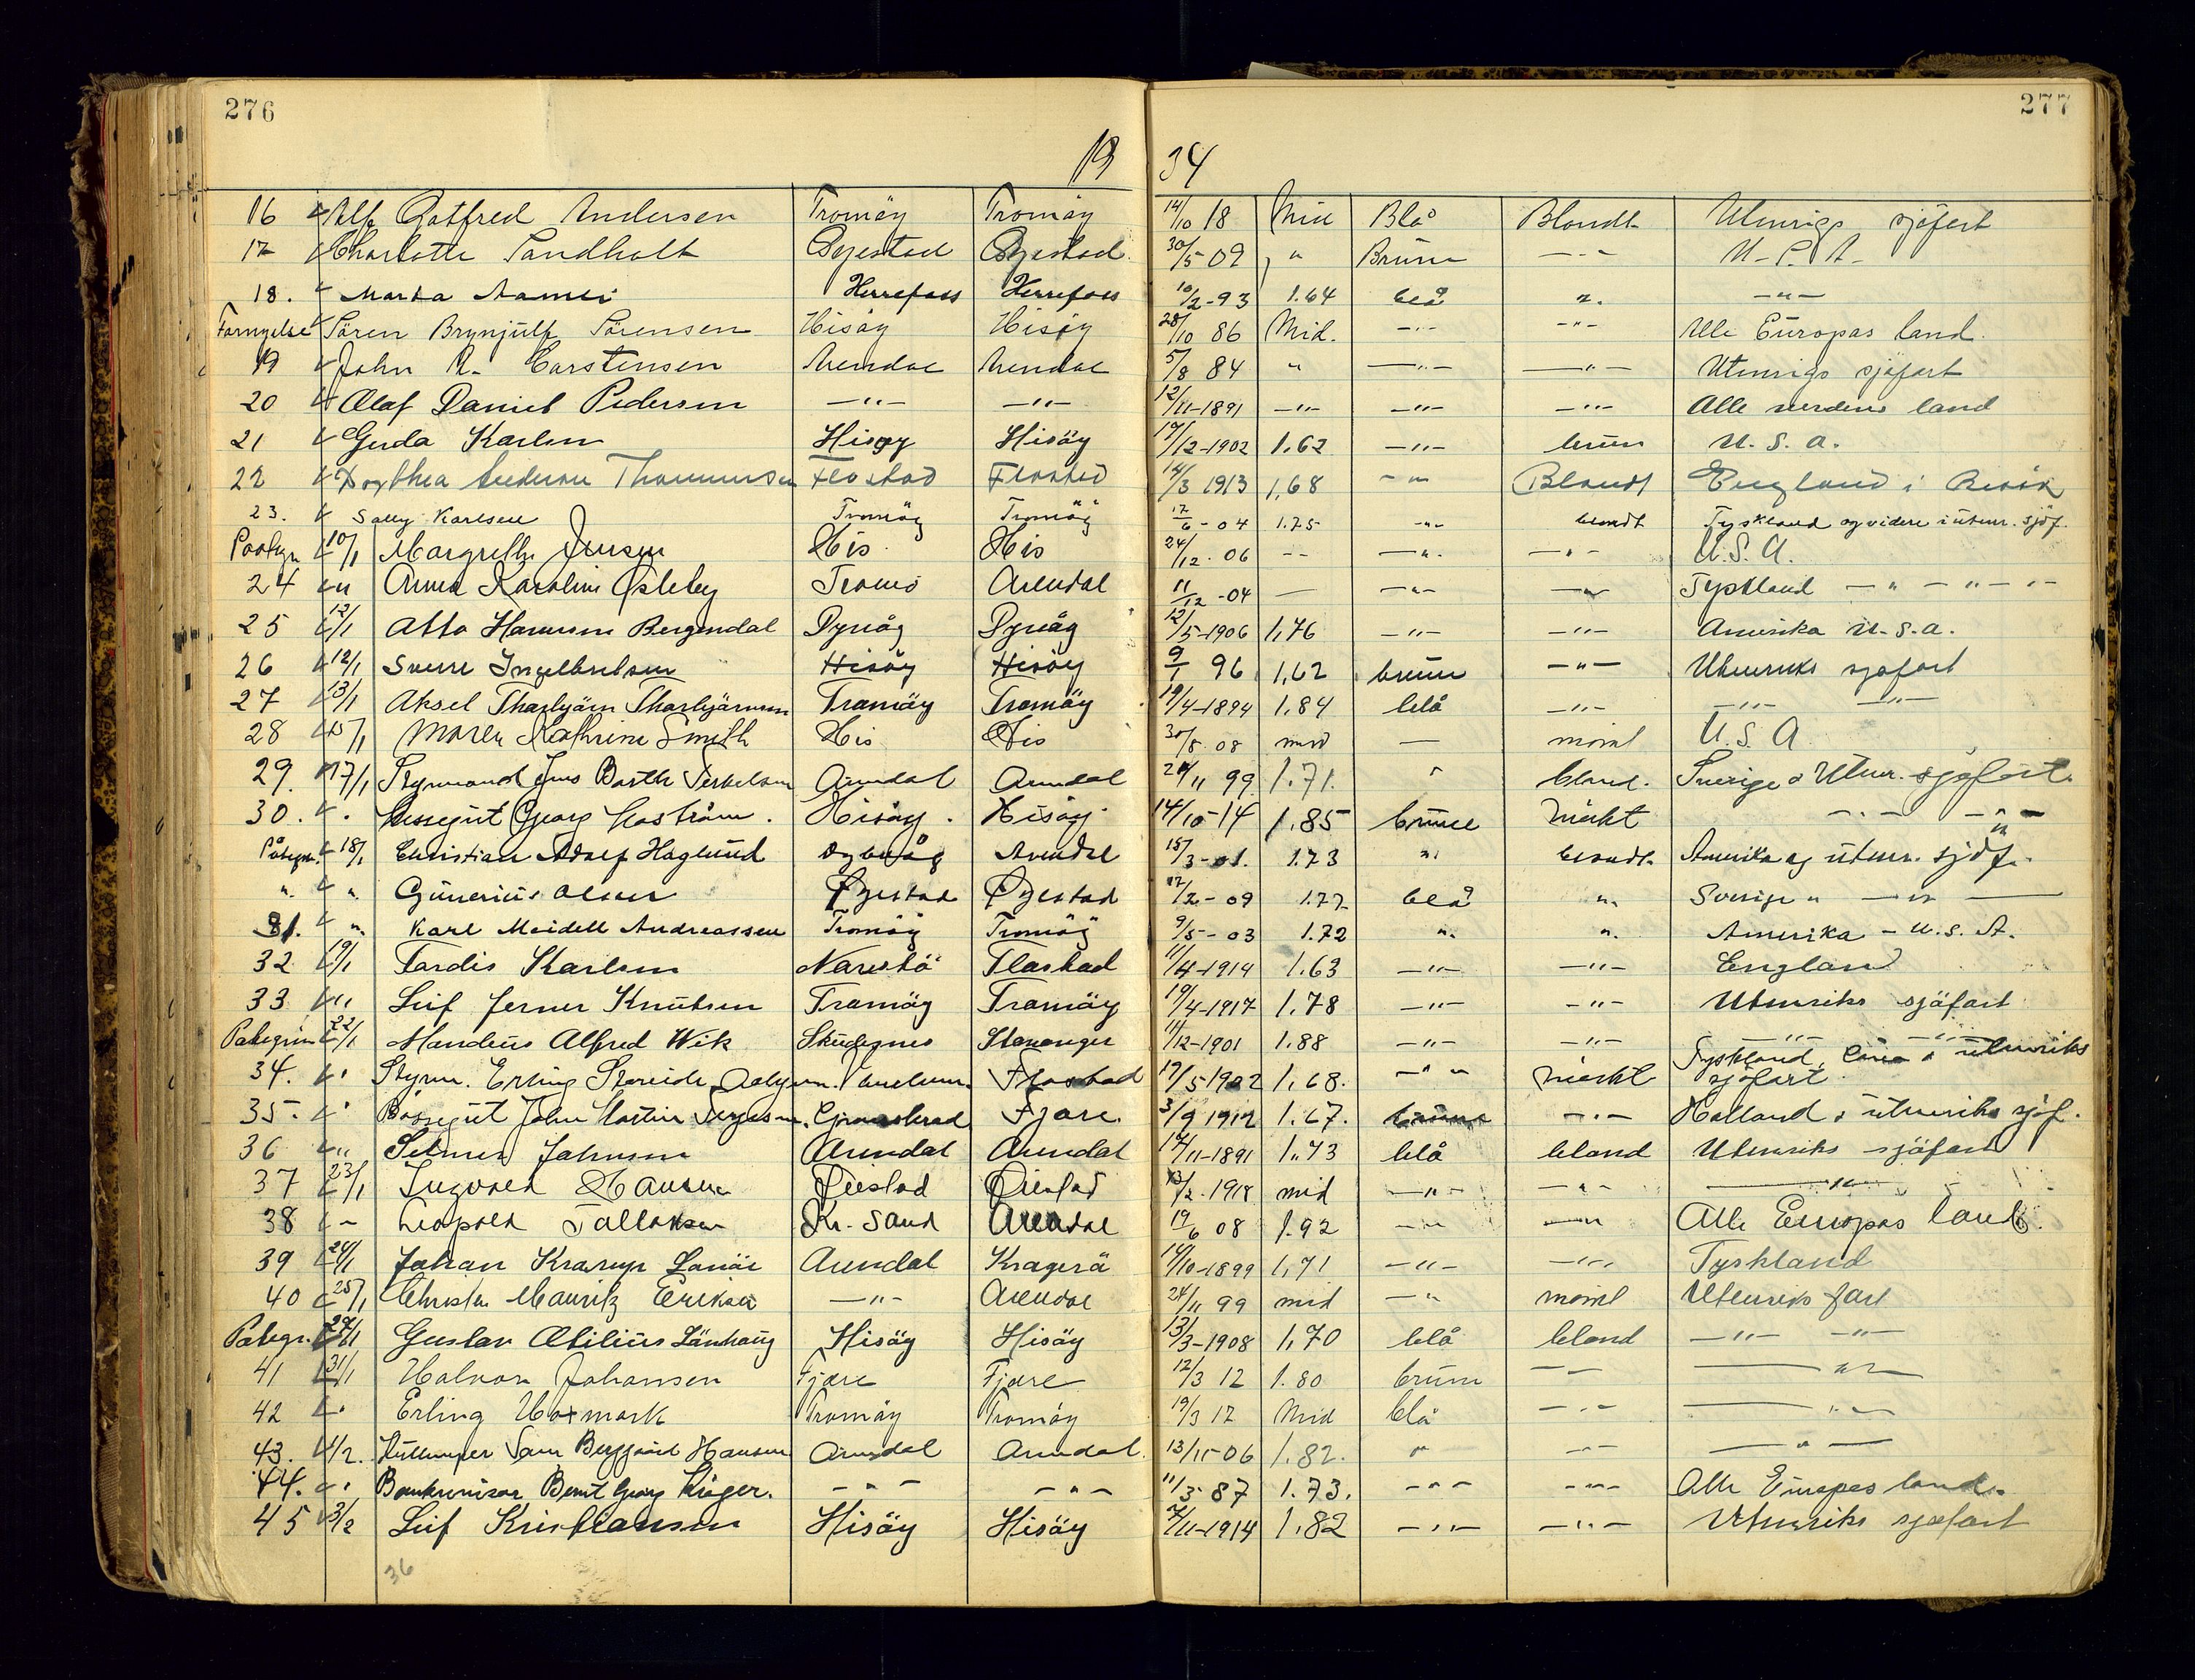 276 277
19 34
16 Alf Gotfred Andersen Tromöy Tromöy 14/10 18 Mid Blå Blondt Utenrigs sjöfart
17 Charlotte Sandholt Öyestad Öyestad 30/5 09 " Brune —"— U.S.A.
18. Marta Herrefoss Herrefoss 10/2-93 1.64 blå ". —"—
Fornyelse Sören Brynjulf Sörensen Hisöy Hisöy 28/10 86 Mid. —"— —"— Alle Europas land.
19 John A. Carstensen Arendal Arendal 5/8 84 " —"— —"— Utenrigs sjöfart
20 Olaf Daniel Pedersen —"— —"— 12/11-1891 —"— —"— —"— Alle verdens land
21 Gerda Karlsen Hisøy Hisöy 17/12-1902 1.62 —"— brun U.S.A.
22 Thommesen Flostad Flostad 14/3 1913 1,68 —"— Blondt England i Besök
23. Sally Karlsen Tromöy Tromöy 17/6-04 1.75 —"— blondt Tyskland og videre i utenr. sjöf.
10/1 Margrethe Jensen His His 24/12.06 —"— —"— U.S.A.
24 " Anna Karoline Østeby Tromö Arendal 11/12-04 — —"— —"— Tyskland —"—"—"—
25 12/1 Otto Hansen Bergendal Dypvåg Dypvåg 12/5-1906 1,76 —"— —"— Amerika U.S.A.
26 12/1 Sverre Ingelbretsen Hisöy Hisöy 9/1 96 1,62 brune —"— Utenriks sjøfart
27 13/1 Aksel Thorbjörn Thorbjörnsen Tromöy Tromöy 19/4-1894 1.84 blå —"— —"— —"—
28 15/1 Maren Kathrine Smith His His 30/8.08 mid — mörk U.S.A
29. 17/1 Styrmand Jens Barth Terkelsen Arendal Arendal 1.71. " blond. Sverige & Utenr. sjøfart.
30. ". Messegut Georg Hisöy. Hisöy. 14/10-14 1.85 brune Mörkt —"— —"—
Påtegn. 18/1 Christian Adolf Haglund Dybvåg Arendal 15/3-01. 1.73 " blondt. Amerika og utenr. sjöf.
". " Gunerius Olsen Øyestad Øyestad 12/2-09 1.77 blå ". Sverige " —"—
31. ". Karl Meidell Andreassen Tromöy Tromöy 9/5-03 1.72 ". ". Amerika - U.S.A.
32 19/1 Tordis Karlsen Narestö Flostad 11/4-1914 1.63 —"— —"— England
33 " Leif Jerner Knutsen Tromöy Tromöy 19/4-1917 1.78 —"— —"— Utenriks sjöfart
22/1 Mandius Alfred Wik Skudesnes Stavanger 11/12-1901 1.88 —"— —"— —"— —"—
34. " Styrm. Erling Flostad 17/5-1902 1,68. —"— mörkt Tyskland, & utenriks sjøfart
35. " Båssegut John Martin Terjesen. Fjære. 3/9 1912 1.67. brune —"— Holland & utenriks sjöf.
36 " Selmer Johnsen Arendal Arendal 14/11-1891 1.73 blå blond Utenriks sjöfart
37 23/1 Ingvald Hansen Øiestad Øiestad mid —"— —"— —"—
38 " Leopold Tallaksen Kr. Sand Arendal 19/6 08 1.92 —"— —"— Alle Europas land.
39 24/1 Johan Krarup Arendal Kragerö 14/10-1899 1,71 —"— —"— Tyskland
40 25/1 Christen Mauritz Eriksen —"— Arendal 24/11 99 mid —"— mörk Utenriks fart
29/1 Gustav Hisöy Hisöy 13/3-1908 1,70 blå blond —"— —"—
41 31/1 Halvor Johansen Fjære Fjære 12/3 12 1.80 brune —"— —"—
42 " Erling Tromöy Tromöy 19/3 12 Mid blå —"— —"—
43. 1/2. Hansen Arendal Arendal. 13/11-06 1.82. " —"— —"—
44. ". Bankrevisor Bernt Georg Krøger. —"— —"— 11/3-87 1.73. —"— —"— Alle Europas land.
45 3/2 Leif Kristiansen Hisöy Hisöy 1.82 —"— —"— Utenriks sjøfart
36